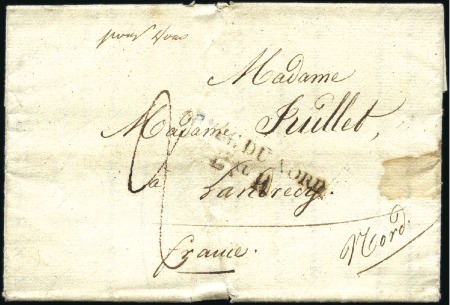 pour vous
Madame
Madame Juillet,
ARM. DU NORD
à Landrecy.
france.
Nord.